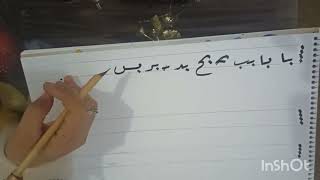 با با بب بح بد بر بس
InShOt